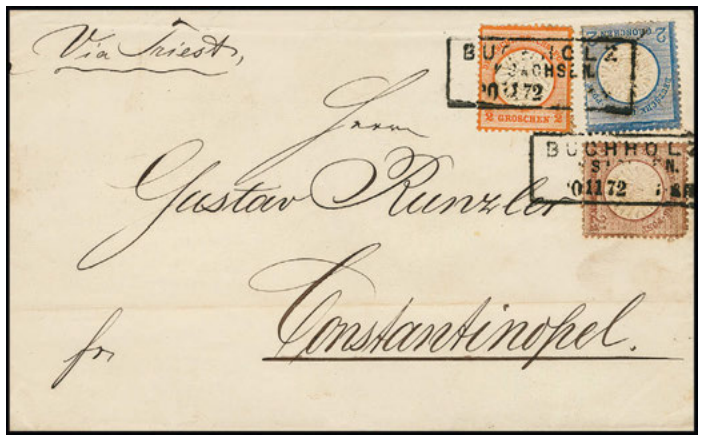 Via Triest,
BUCHHOLZ
SACHSEN.
20 11 72
2 GROSCHEN 2
2 GROSCHEN 2
BUCHHOLZ
SACHSEN.
20 11 72
Herrn
Gustav Runzler
Constantinopel.
fr.